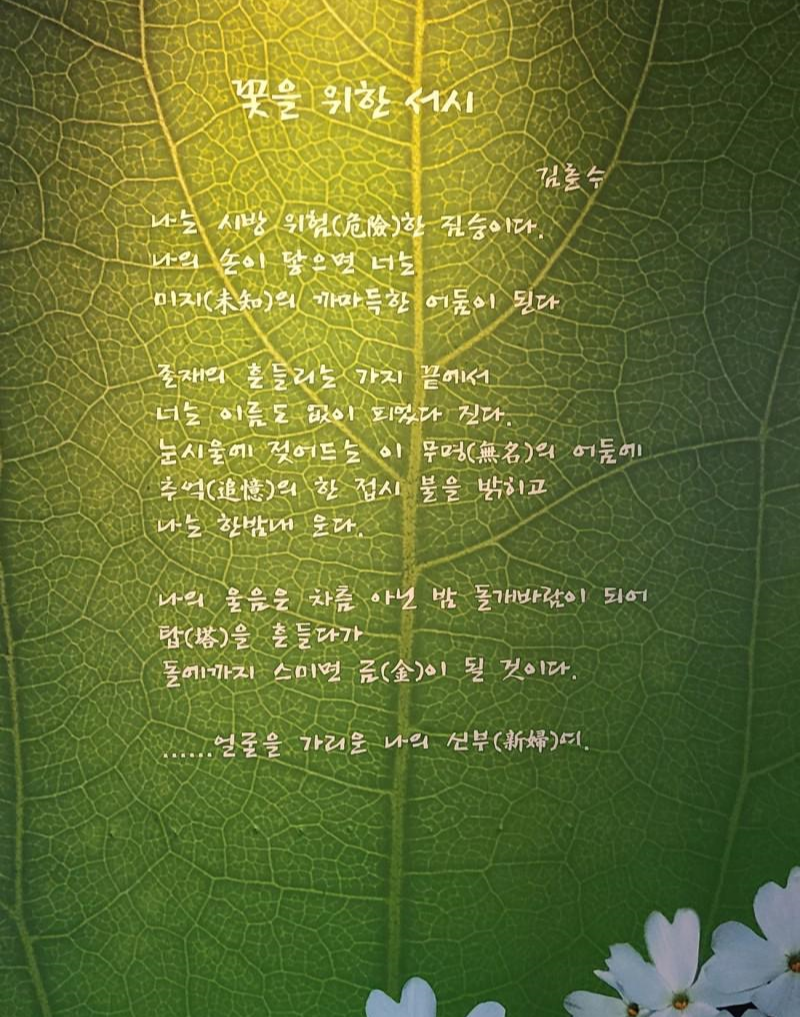 꽃을 위한 서시
김춘수
나는 시방 위험(危險)한 짐승이다.
나의 손이 닿으면 너는
미지(未知)의 까마득한 어둠이 된다
존재의 흔들리는 가지 끝에서
너는 이름도 없이 피었다 진다.
눈시울에 젖어드는 이 무명(無名)의 어둠에
추억(追憶)의 한 접시 불을 밝히고
나는 한밤내 운다.
나의 울음은 차츰 아닌 밤 돌개바람이 되어
탑(塔)을 흔들다가
돌에까지 스미면 금(金)이 될 것이다.
......얼굴을 가리운 나의 신부(新婦)여.